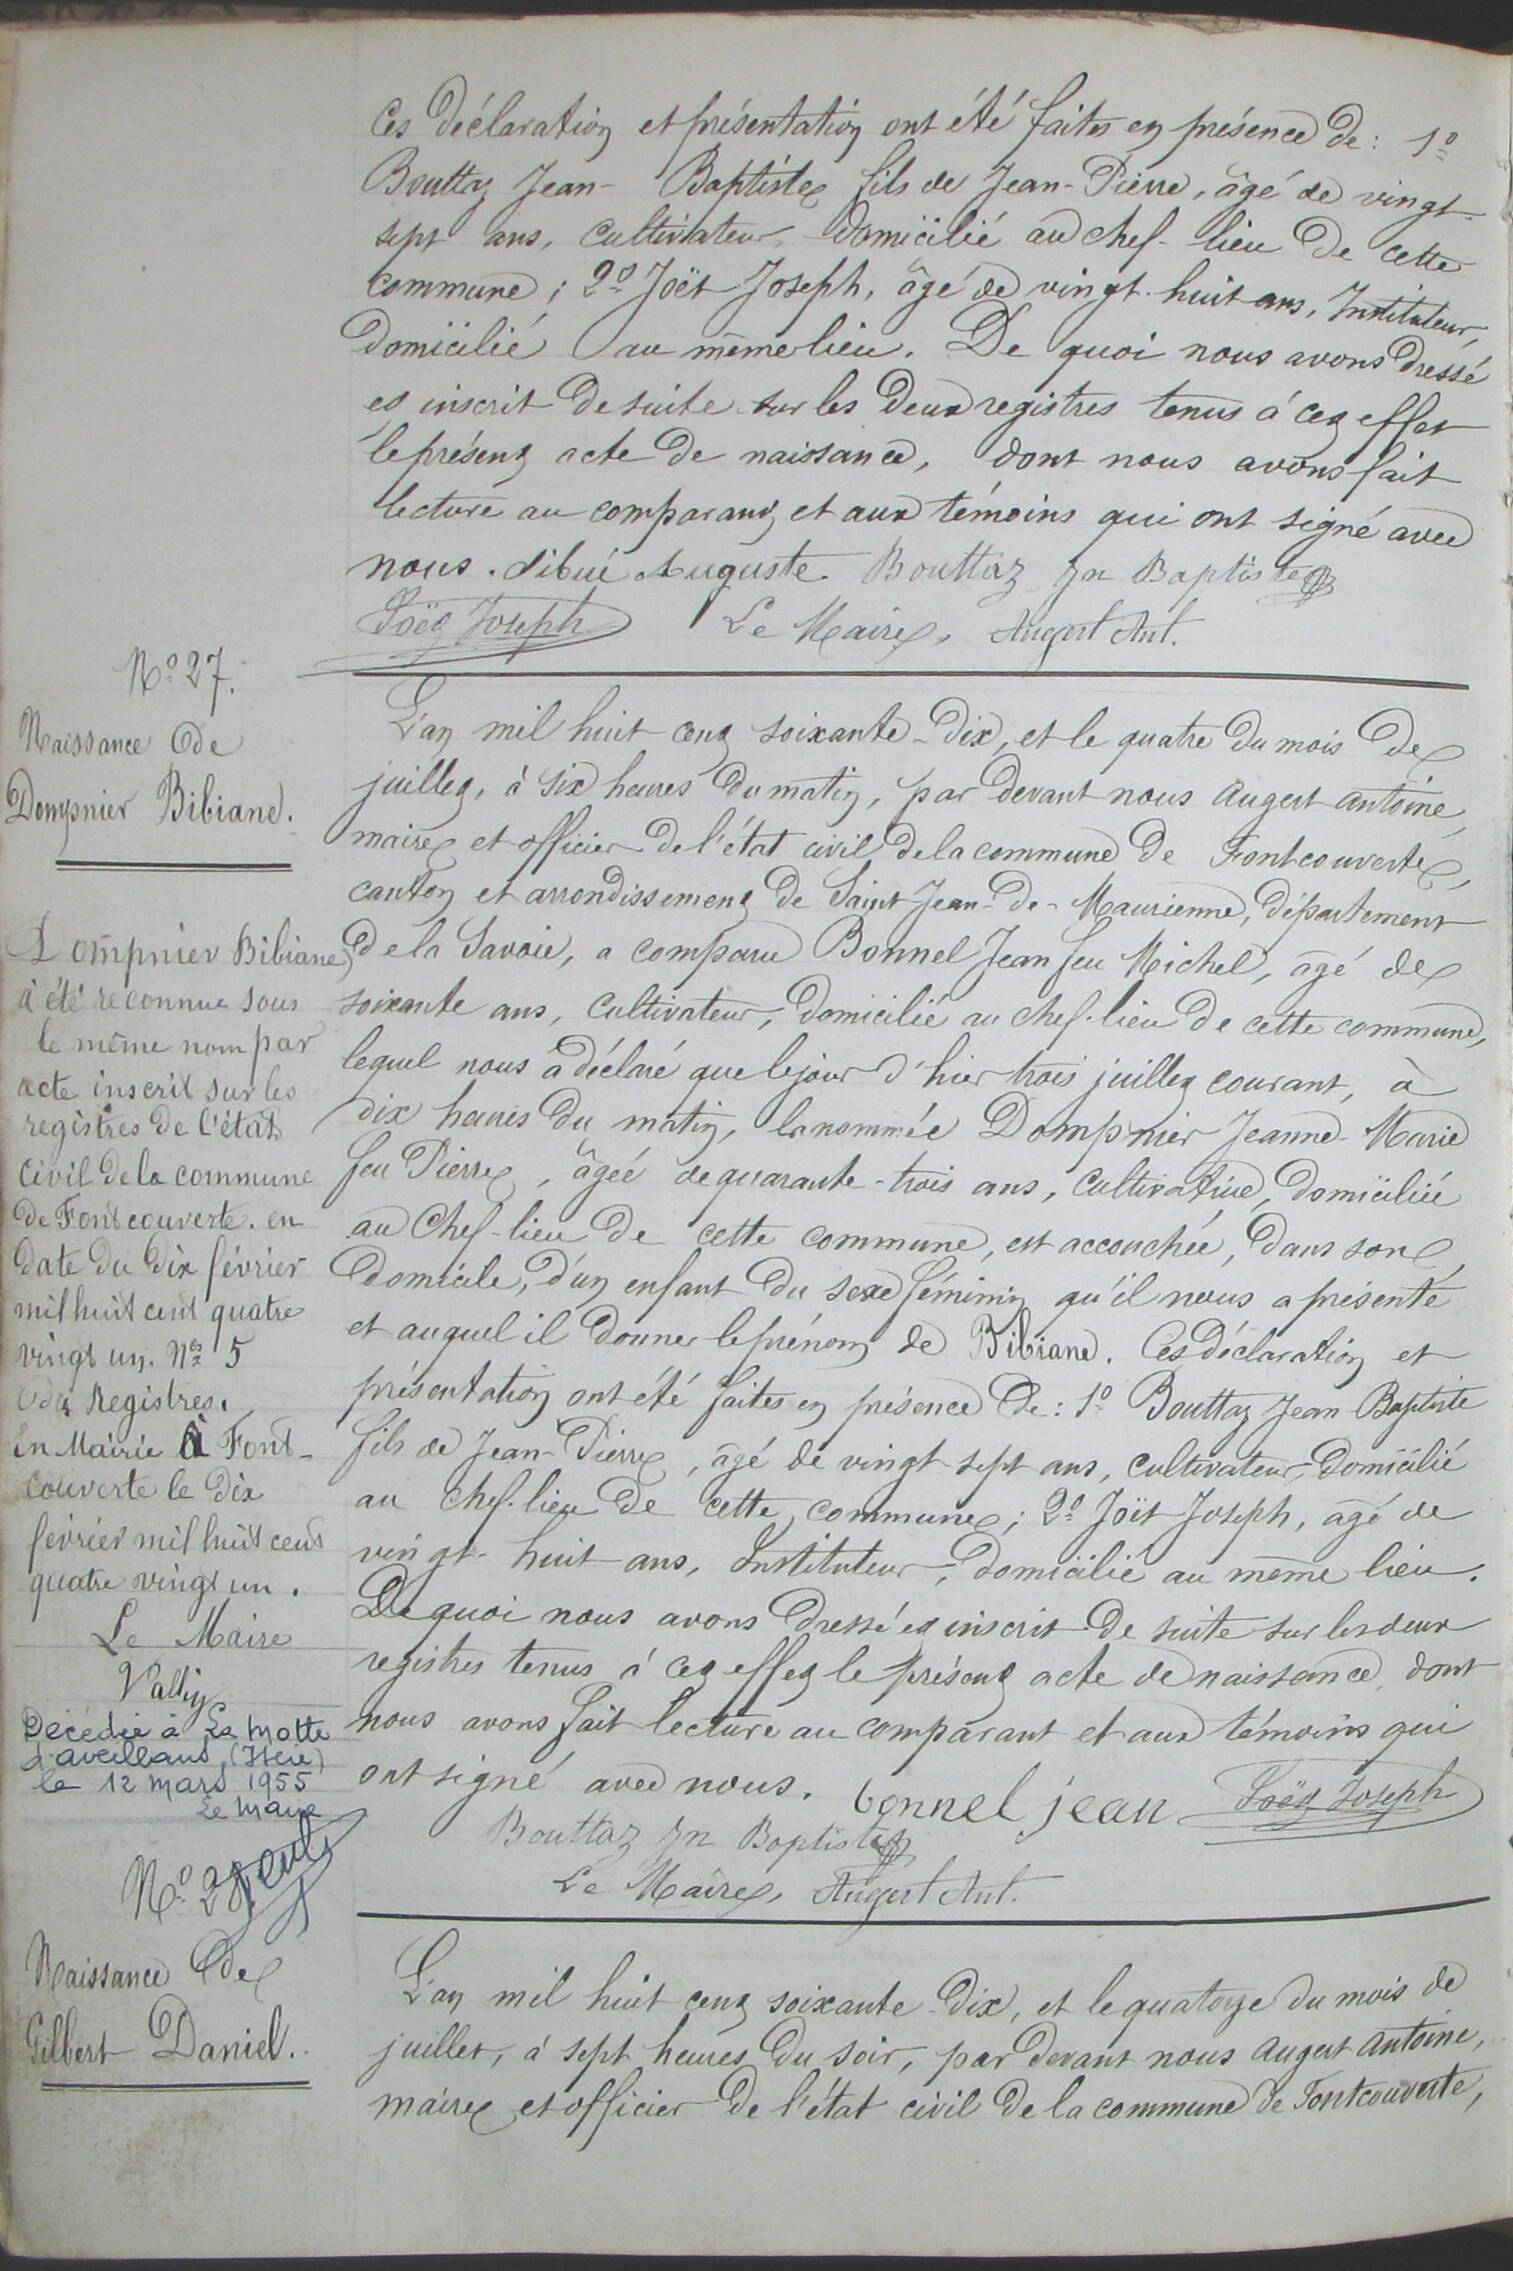 Ces déclaration et présentation ont été faites en présence de : 1º
Bouttaz Jean-Baptiste fils de Jean-Pierre, âgé de vingt-
sept ans, cultivateur, domicilié au chef-lieu de cette
commune ; 2º Joët Joseph, âgé de vingt-huit ans, Instituteur,
domicilié au même lieu. De quoi nous avons dressé
et inscrit de suite sur les deux registres tenus à cet effet
le présent acte de naissance, dont nous avons fait
lecture au comparant et aux témoins qui ont signé avec
nous. Sibué Auguste Bouttaz Jn Baptiste
Joët Joseph Le Maire, Augert Ant.
Nº 27.
Naissance de
Dompnier Bibiane.
Dompnier Bibiane
à été reconnue sous
le même nom par
acte inscrit sur les
registres de l'état
civil de la commune
de Fontcouverte. en
date du dix février
mil huit cent quatre
vingt un. Nº 5
des Registres.
En Mairie à Font-
couverte le dix
février mil huit cent
quatre vingt un.
Le Maire
Vallin
Décédée à La Motte
d'aveillans (Isère)
le 12 mars 1955
Le Maire
L'an mil huit cent soixante-dix, et le quatre du mois de
juillet, à six heures du matin, par devant nous Augert Antoine,
maire et officier de l'état civil de la commune de Fontcouverte,
canton et arrondissement de Saint-Jean-de-Maurienne, département
de la Savoie, a comparu Bonnel Jean feu Michel, âgé de
soixante ans, cultivateur, domicilié au chef-lieu de cette commune,
lequel nous à déclaré que le jour d'hier trois juillet courant, à
dix heures du matin, la nommée Dompnier Jeanne-Marie
feu Pierre, âgée de quarante-trois ans, cultivatrice, domiciliée
au chef-lieu de cette commune, est accouchée, dans son
domicile, d'un enfant du sexe féminin qu'il nous a présenté
et auquel il donner le prénom de Bibiane. Ces déclaration et
présentation ont été faites en présence de : 1º Bouttaz Jean-Baptiste
fils de Jean-Pierre, âgé de vingt sept ans, cultivateur, domicilié
au chef-lieu de cette commune ; 2º Joët Joseph, âgé de
vingt-huit ans, Instituteur, domicilié au même lieu.
De quoi nous avons dressé et inscrit de suite sur les deux
registres tenus à cet effet le présent acte de naissance, dont
nous avons fait lecture au comparant et aux témoins qui
ont signé avec nous. bonnel jean Joët Joseph
Bouttaz Jn Baptiste
Le Maire, Augert Ant.
Nº 28
Naissance de
Gilbert Daniel.
L'an mil huit cent soixante-dix, et le quatorze du mois de
juillet, à sept heures du soir, par devant nous Augert Antoine,
maire et officier de l'état civil de la commune de Fontcouverte,